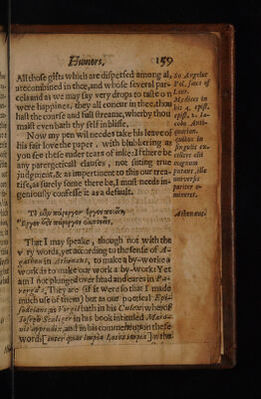 Humors, 159
All those gifts which are dispersed among al,
are combined in thee, and whose several par-
cels and as we may say very drops to taste on
were happines, they all concur in thee, thou
hast the course and full streame, whereby thou
maist even bath thy self in blisse.
Now my pen wil needes take his leave of
his fair love the paper, with blubbering as
you see these euder tears of inke: If there be
any parergeticall clauses, not sitting true
judgment, & as impertinent to this our trea-
tise, as surely some there be, I must needs in-
geniously confesse it as a default.
That I may speake, though not with the
very words, yet according to the sense of A-
gathon in Athenæus, to make a by-worke a
work is to make our work a by-work: Yet
am I not plunged over head and eares in Pa-
rerga's, They are (if it were so that I made
much use of them) but as our poetical Epi-
sodeians, as Virgil hath in his Culex, where
Joseph Scaliger in his book intituled Maro-
nis appendix, and in his comment upon these
words [inter quas impia Lotos impia] withal
So Angelus
Pol. sales of
Medices in
his 4. epist.
epist. 2. Ja-
cobo Anti-
quario.
quibus in
singulis ex-
cellere alii
magnum
putant, ille
universis
pariter e-
mineret.
Athenæus.